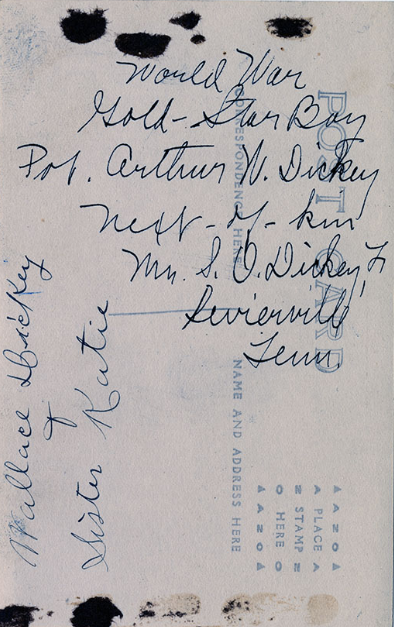 World War
Gold-Star Boy
Pvt. Arthur V. Dickey
Next-of-kin
Mr. S. O. Dickey, F
Sevierville
Tenn.
Wallace Dickey
+
Sister Katie
POST CARD
CORRESPONDENCE HERE
NAME AND ADDRESS HERE
AZO
PLACE
STAMP
HERE
AZO